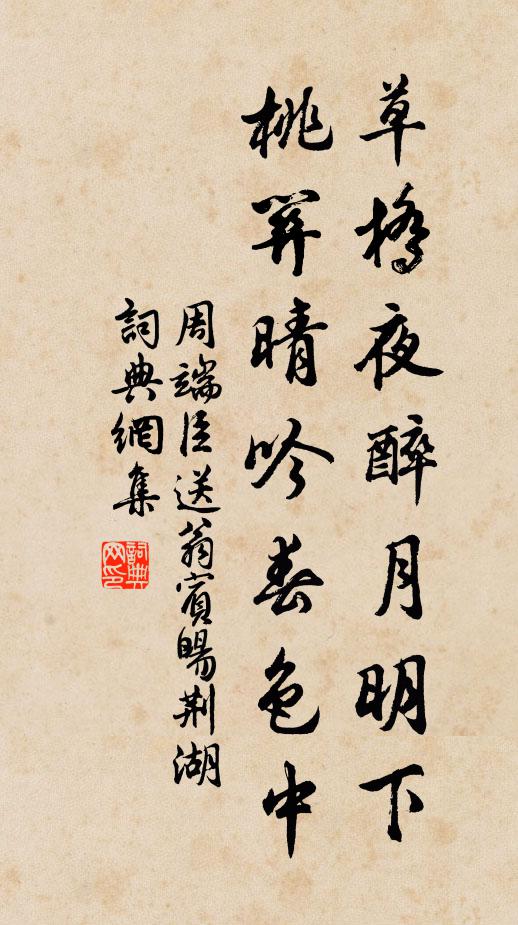 草橋夜醉月明下
桃笄晴吟春色中
周端臣送翁賓暘荆湖
詞典網集
詞典网印